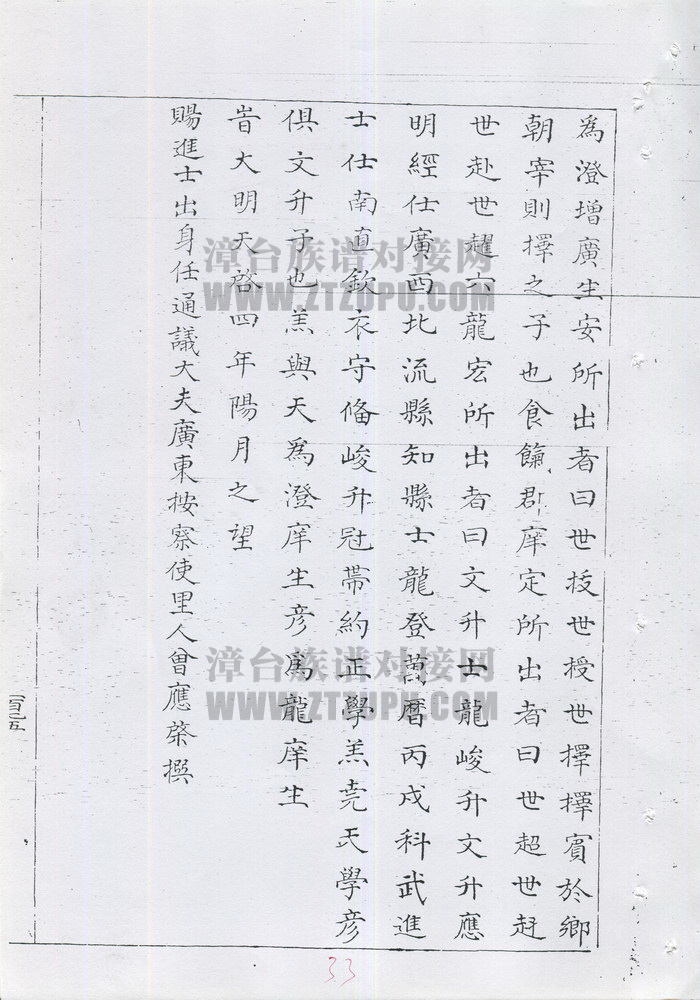 為澄增廣生安所出者曰世扳世授世擇擇賓於鄉
朝宰則擇之子也食餼郡庠定所出者曰世超世赶
世赴世趯六龍宏所出者曰文升士龍峻升文升應
明經仕廣西北流縣知縣士龍登萬曆丙戌科武進
士仕南直欽衣守偹峻升冠帶約正學羔堯天學彥
俱文升子也羔與天為澄庠生彥為龍庠生
旹大明天啓四年陽月之望
賜進士出身任通議大夫廣東按察使里人曾應
撰
漳台族谱对接网
WWW.ZTZUPU.COM
漳台族谱对接网
WWW.ZTZUPU.COM
33